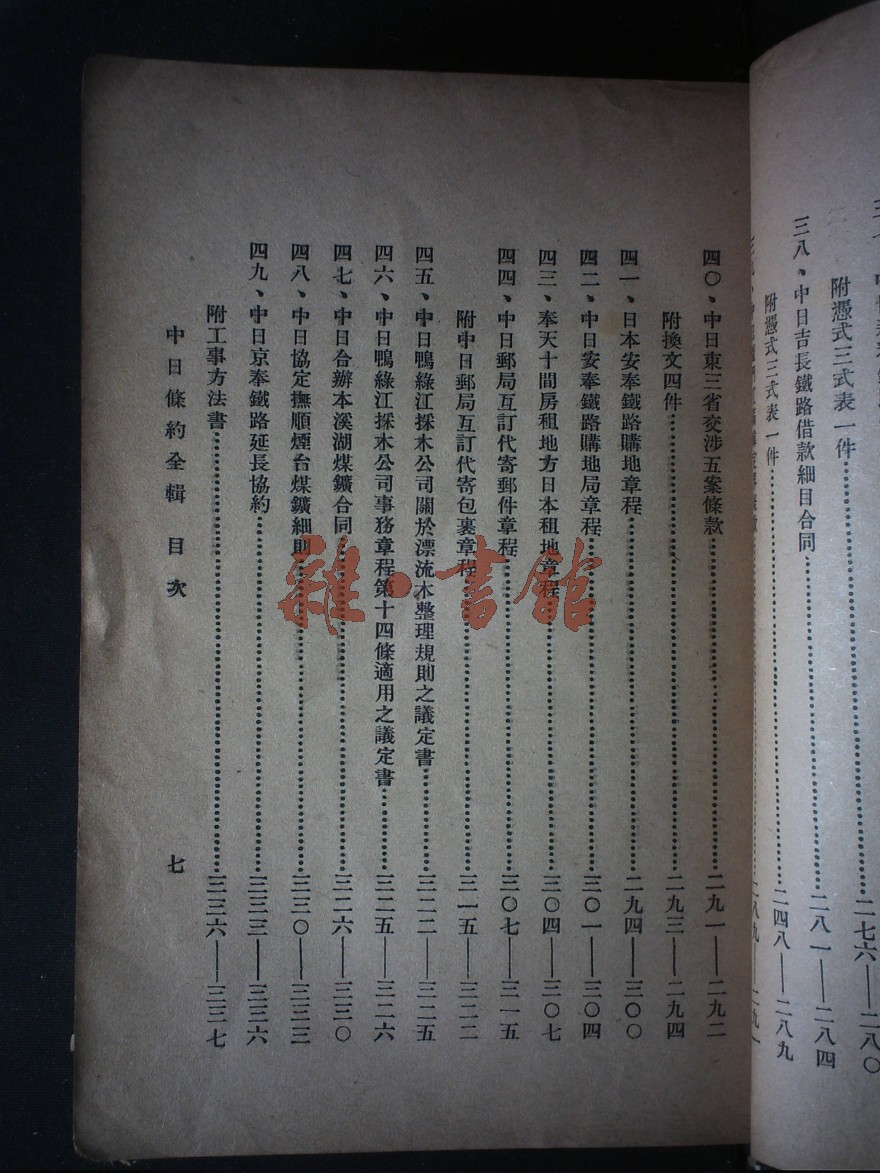 附憑式三式表一件……二七六——二八〇
三八、中日吉長鐵路借款細目合同……二八一——二八四
附憑式三式表一件……二四八——二八九
二八九——二九一
四〇、中日東三省交涉五案條款……二九一——二九二
附換文四件……二九三——二九四
四一、日本安奉鐵路購地章程……二九四——三〇〇
四二、中日安奉鐵路購地局章程……三〇一——三〇四
四三、奉天十間房租地方日本租地章程……三〇四——三〇七
四四、中日郵局互訂代寄郵件章程……三〇七——三一五
附中日郵局互訂代寄包裹章程……三一五——三二二
四五、中日鴨綠江採木公司關於漂流木整理規則之議定書……三二二——三二五
四六、中日鴨綠江採木公司事務章程第十四條適用之議定書……三二五——三二六
四七、中日合辦本溪湖煤鑛合同……三二六——三三〇
四八、中日協定撫順煙台煤鑛細則……三三〇——三三三
四九、中日京奉鐵路延長協約……三三三——三三六
附工事方法書……三三六——三三七
中日條約全輯 目次 七
雜·書館